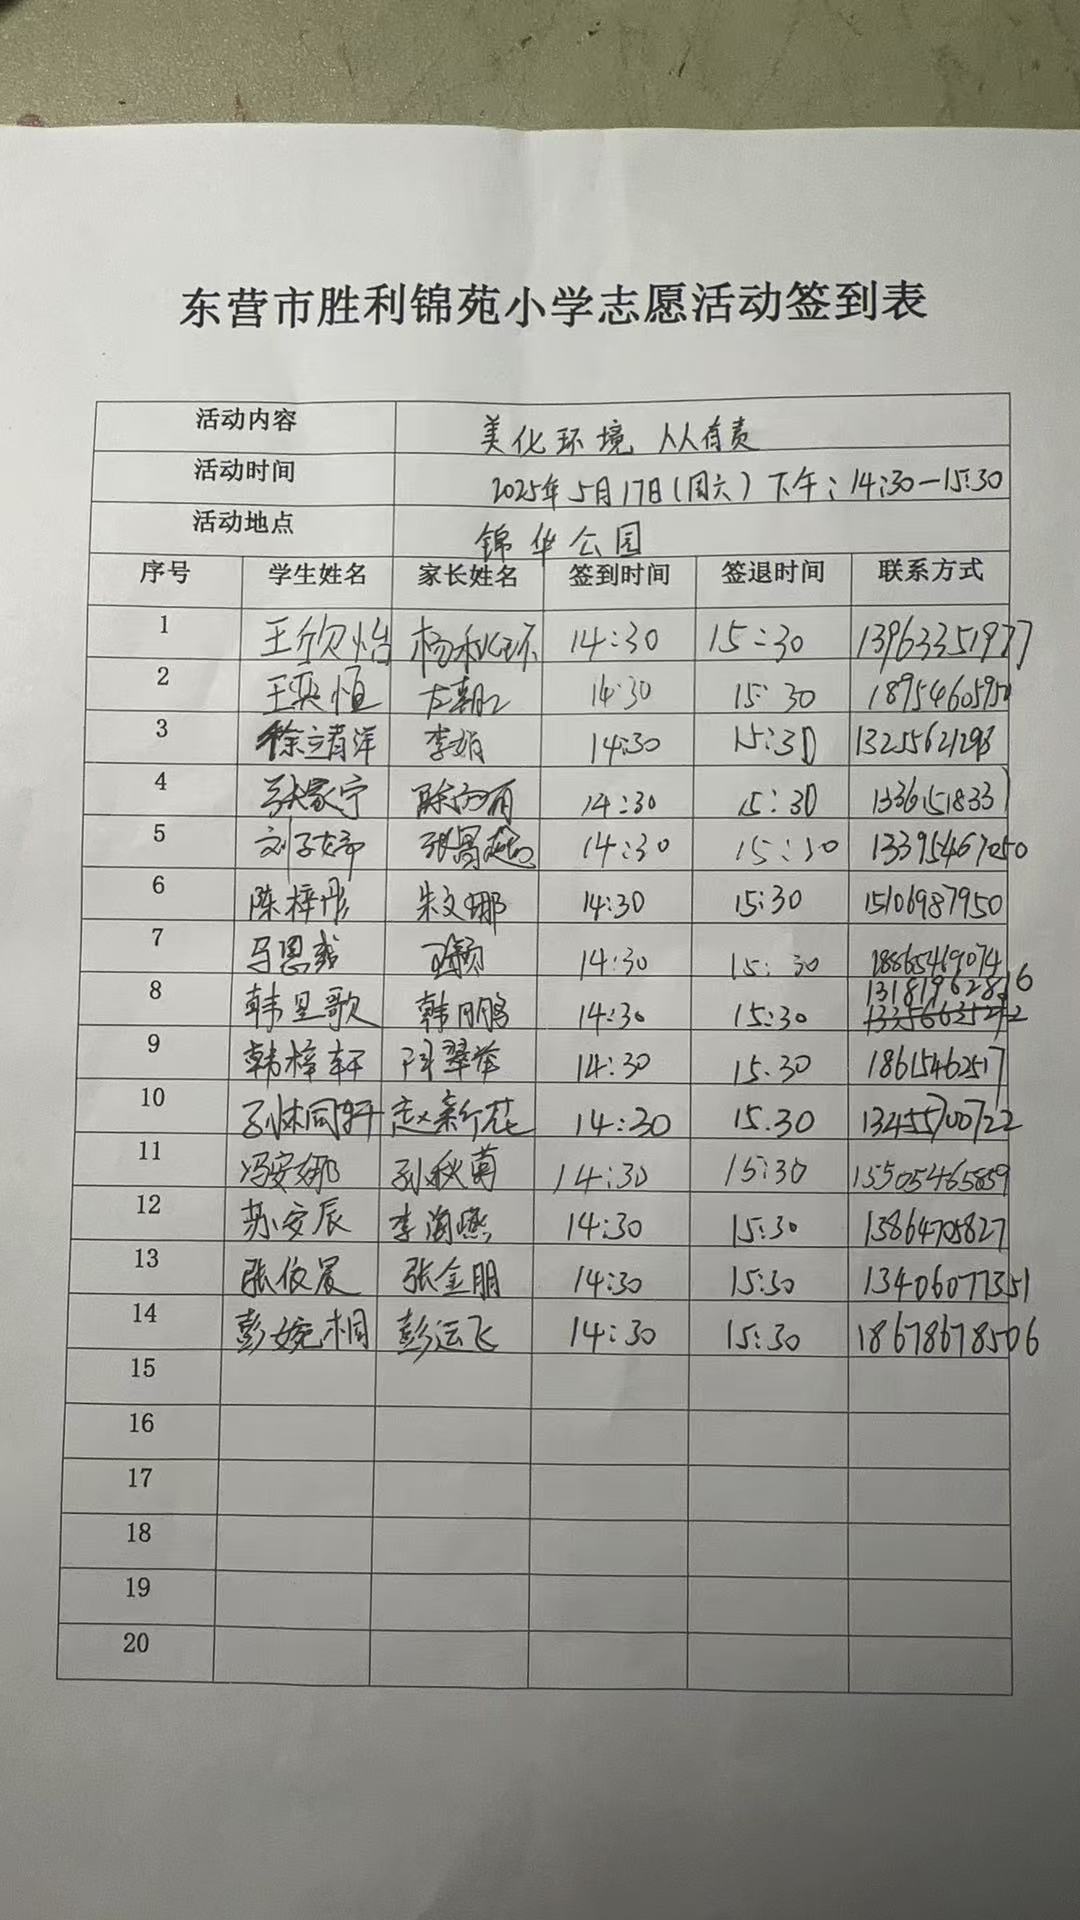 东营市胜利锦苑小学志愿活动签到表
活动内容 美化环境 人人有责
活动时间 2025年5月17日(周六)下午:14:30—15:30
活动地点 锦华公园
序号 学生姓名 家长姓名 签到时间 签退时间 联系方式
1 王欣怡 杨秋环 14:30 15:30 13963351977
2 王奕恒 14:30 15:30
3 徐立青洋 李娟 14:30 15:30 13255621293
4 张家宁 14:30 15:30
5 刘子婷 14:30 15:30 13395467050
6 陈梓彤 朱文娜 14:30 15:30 15106987950
7 马恩 14:30 15:30 18865469074
8 韩里歌 韩鹏 14:30 15:30 13181962816
9 韩梓轩 14:30 15:30 18615462517
10 孙林同轩 赵新花 14:30 15.30 13455700722
11 冯安娜 孙秋菊 14:30 15:30 15505465859
12 苏安辰 李海燕 14:30 15:30 13864705827
13 张俊晨 张金朋 14:30 15:30 13406077351
14 彭婉桐 彭运飞 14:30 15:30 18678678506
15
16
17
18
19
20